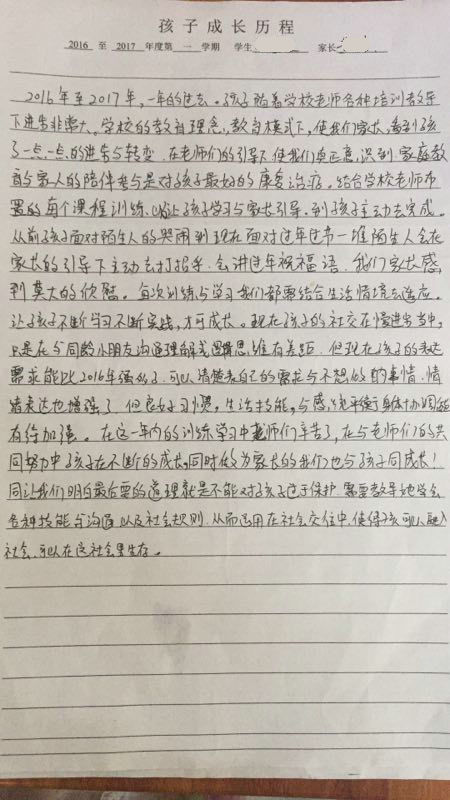 孩子成长历程
2016 至 2017 年度第 一 学期 学生 家长
2016年至2017年,一年的过去。孩子随着学校老师各种培训教导
下进步非常大。学校的教育理念,教育模式下,使我们家长,看到孩
子一点一点的进步与转变。在老师们的引导下使我们真正意识到家庭教
育与家人的陪伴参与是对孩子最好的康复治疗。结合学校老师布
置的每个课程训练,以让孩子学习与家长引导,到孩子主动去完成。
从前孩子面对陌生人的哭闹到现在面对过年过节一堆陌生人会在
家长的引导下主动去打招乎,会讲过年祝福语,我们家长感
到莫大的欣慰。每次训练与学习我们都要结合生活情境去适应。
让孩子不断学习不断实践,才可成长。现在孩子的社交在慢进步当中,
只是在与同龄小朋友沟通理解逻辑思维有差距,但现在孩子的表达
需求能比2016年强多了,可以清楚表自己的需求与不想做的事情,情
绪表达也增强了,但良好习惯,生活技能,与感统平衡身体协调能
有待加强。在这一年内的训练学习中老师们辛苦了,在与老师们的共
同努力中孩子在不断的成长,同时做为家长的我们也与孩子同成长!
同让我们明白最后要的道理就是不能对孩子过于保护,需要教导他学会
各种技能与沟通以及社会规则,从而运用在社会交往中,使得孩可以融入
社会,可以在这社会里生存。